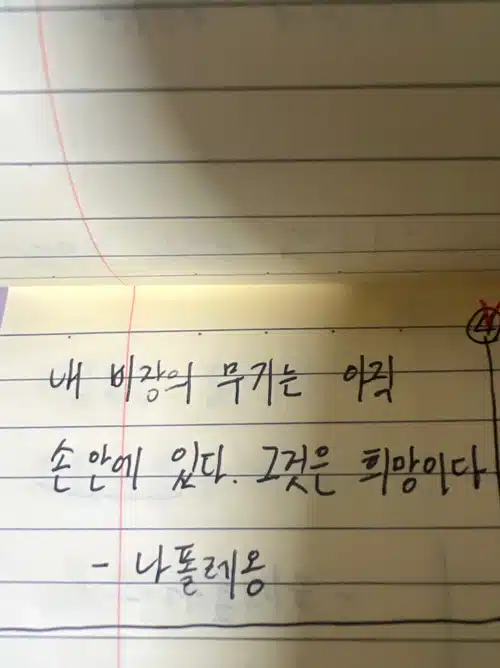 ④
내 비장의 무기는 아직
손 안에 있다. 그것은 희망이다
- 나폴레옹